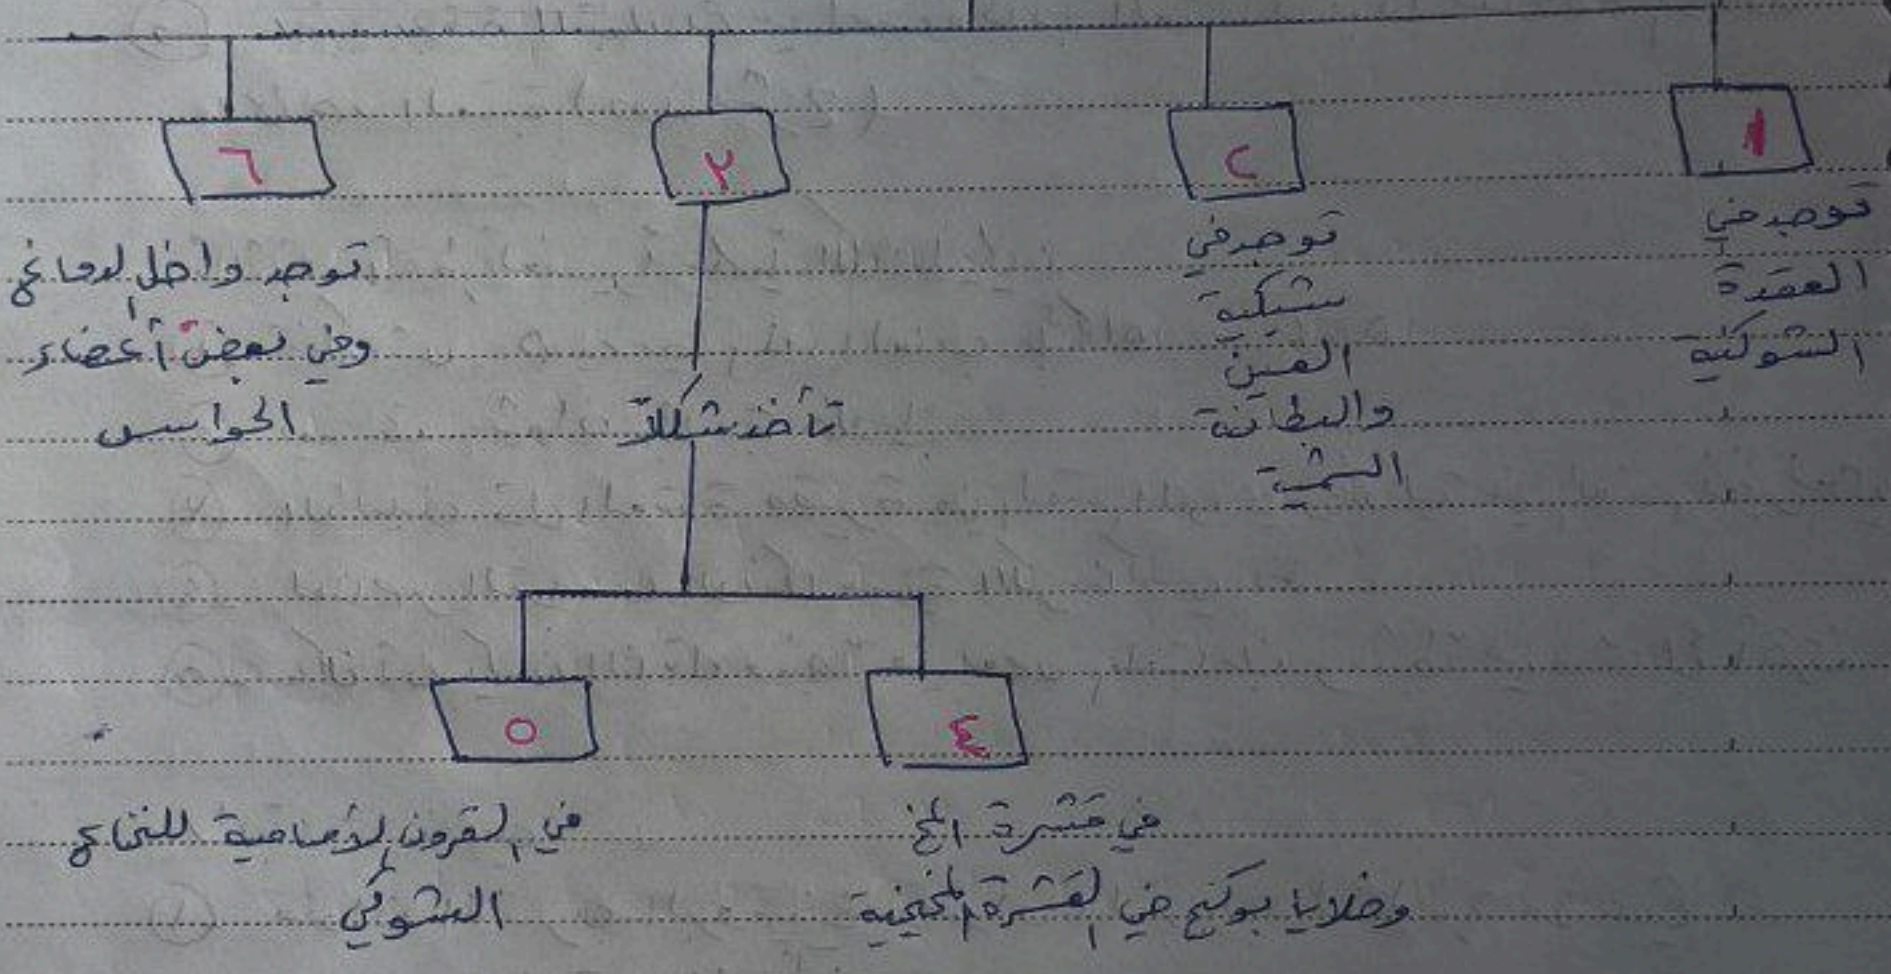 ١
٢
٣
٦
توجد في
العقدة
الشوكية
توجد في
شبكية
العين
والبطانة
الشمية
تأخذ شكلاً
توجد داخل الدماغ
وفي بعض أعضاء
الحواس
٤
٥
في قشرة المخ
وخلايا بوركنج في القشرة المخيخية
في القرون الأمامية للنخاع
الشوكي